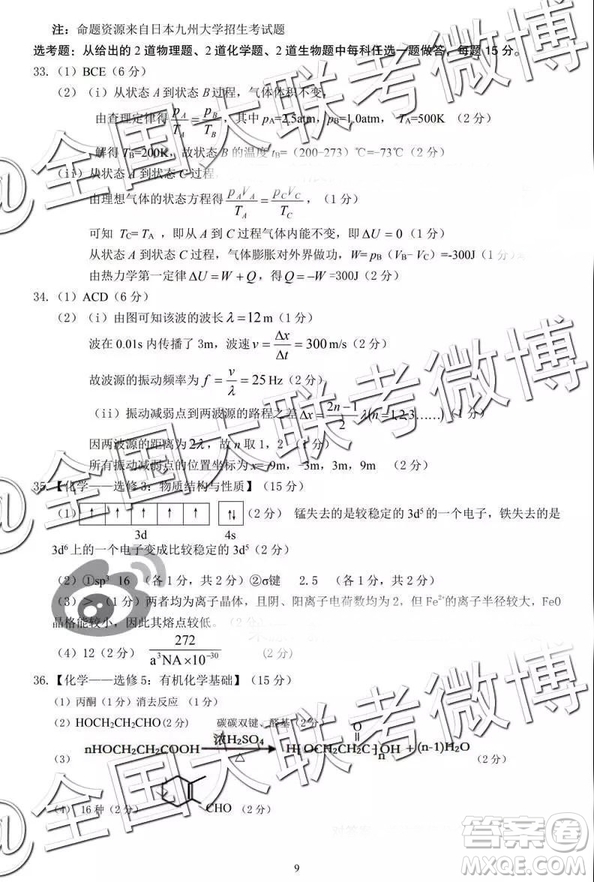 注：命题资源来自日本九州大学招生考试题
选考题：从给出的 2 道物理题、2 道化学题、2 道生物题中每科任选一题做答，每题 15 分。
33.（1）BCE（6 分）
（2）（i）从状态 A 到状态 B 过程，气体体积不变，
由查理定律得 p_A/T_A = p_B/T_B，其中 p_A=2.5atm，p_B=1.0atm， T_A=500K （2 分）
解得 T_B=200K，故状态 B 的温度 t_B=（200-273）℃=-73℃（2 分）
（ii）从状态 A 到状态 C 过程，
由理想气体的状态方程有 p_AV_A/T_A = p_CV_C/T_C，（1 分）
可知 T_C= T_A ，即从 A 到 C 过程气体内能不变，即ΔU = 0（1 分）
从状态 A 到状态 C 过程，气体膨胀对外界做功，W= p_B（V_B- V_C）=-300J（2 分）
由热力学第一定律 ΔU = W + Q，得 Q = -W =300J（2 分）
34.（1）ACD（6 分）
（2）（i）由图可知该波的波长 λ=12m（1 分）
波在 0.01s 内传播了 3m，波速 v = Δx/Δt = 300 m/s（2 分）
故波源的振动频率为 f = v/λ = 25Hz（2 分）
（ii）振动减弱点到两波源的路程之差 Δx = (2n-1)/2 λ(n=1,2,3……)（1 分）
因两波源的距离为 2λ，故 n 取 1，2（1 分）
所有振动减弱点的位置坐标为 x= -9m、-3m、3m、9m （2 分）
35.【化学——选修 3：物质结构与性质】（15 分）
（1） ↑ ↑ ↑ ↑ ↑ ↑↓ （2 分） 锰失去的是较稳定的 3d⁵ 的一个电子，铁失去的是
3d 4s
3d⁶ 上的一个电子变成比较稳定的 3d⁵（2 分）
（2）①sp³ 16 （各 1 分，共 2 分）②σ键 2.5 （各 1 分，共 2 分）
（3）＞ （1 分）两者均为离子晶体，且阴、阳离子电荷数均为 2，但 Fe²⁺的离子半径较大，FeO
晶格能较小，因此其熔点较低。（2 分）
（4）12（2 分） 272/(a³NA×10⁻³⁰) （2 分）
36.【化学——选修 5：有机化学基础】（15 分）
（1）丙酮（1 分）消去反应 （1 分）
（2）HOCH₂CH₂CHO(2 分） 碳碳双键、醛基（2 分）
（3） nHOCH₂CH₂COOH 浓H₂SO₄ △ H[OCH₂CH₂C(O)]nOH + (n-1)H₂O （2 分）
（4）16 种（2 分） CHO （2 分）
9
@全国大联考微博
@全国大联考微博
@全国大联考微博
答案圈
MXQE.COM